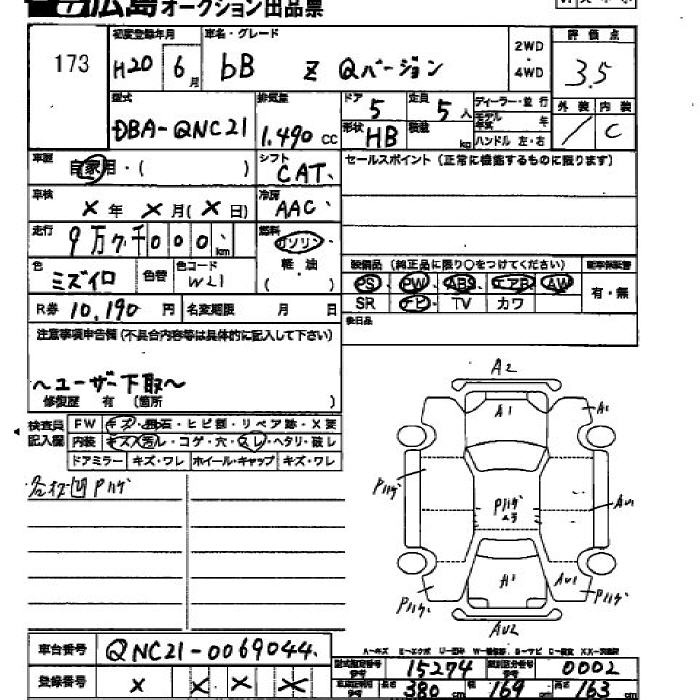 広島オークション出品票
173
初度登録年月
H20 6月
車名・グレード
bB Z Qバージョン
2WD
・
4WD
評価点
3.5
型式
DBA-QNC21
排気量
1.490 cc
ドア 5
定員 5人
形状 HB
積載 kg
ディーラー・並行
モデル年式 年
ハンドル 左・右
外装 内装
/ C
車歴
自家用・( )
シフト
CAT
セールスポイント (正常に機能するものに限ります)
車検
X年 X月(X日)
冷房
AAC
走行
9万7千000km
燃料
ガソリン
軽・油
( )
色
ミズイロ
色替
色コード
W21
装備品 (純正品に限り○をつけてください)
PS PW ABS エアB AW
SR ナビ・TV カワ
有・無
R券 10,190 円
名変期限 月 日
後日品
注意事項申告欄 (不具合内容等は具体的に記入して下さい)
〜ユーザー下取〜
修復歴 有 (箇所 )
検査員
記入欄
FW キズ・飛石・ヒビ割・リペア跡・X要
内装 キズ・汚レ・コゲ・穴・スレ・ヘタリ・破レ
ドアミラー キズ・ワレ ホイール・キャップ キズ・ワレ
A2
A1
A1
Pハゲ
Pハゲ
AU1
A1
AU1
Pハゲ
Pハゲ
AU2
車台番号 QNC21-0069044
登録番号 X X X X
型式指定番号 15274
類別区分番号 0002
長さ 380 cm 幅 169 cm 高さ 163 cm